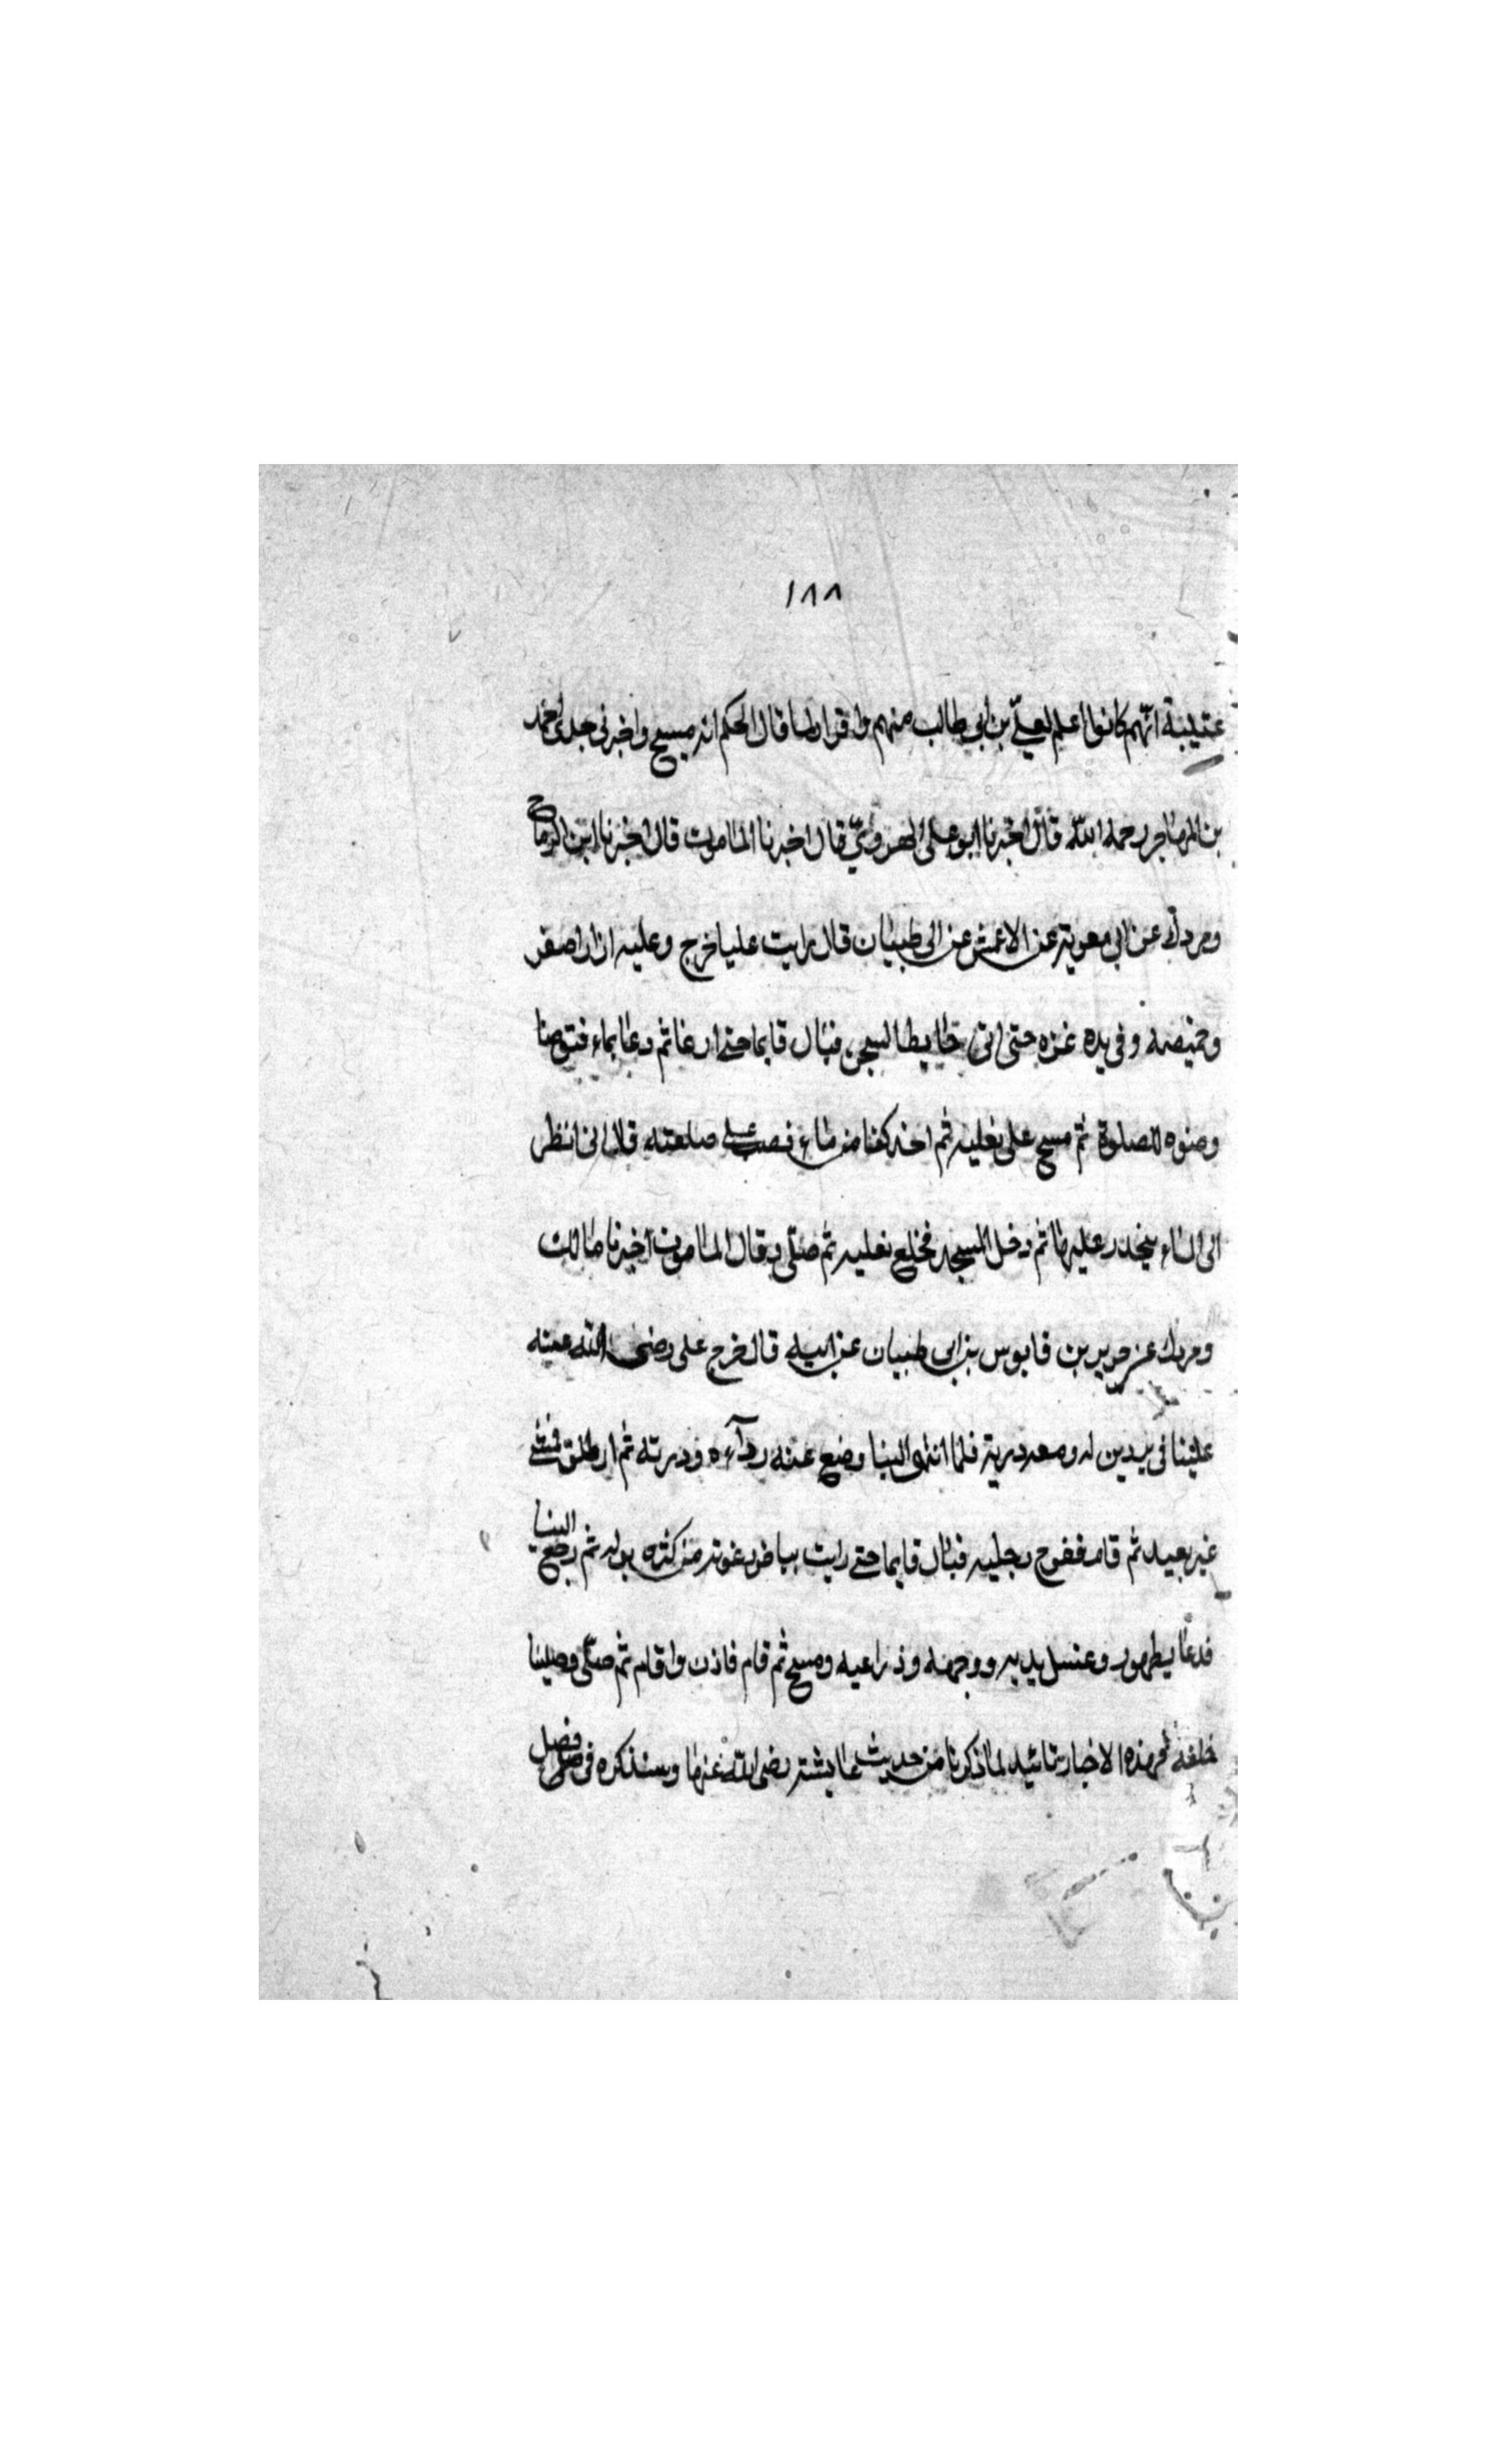 ١٨٨
عتيبة انهم كانوا اعلم بعلي بن ابي طالب منهم قال الحكم انه مسح واخبرني جدي احمد
بن المهاجر رحمه الله قال اخبرنا ابو علي الهروي قال اخبرنا المامون قال اخبرنا ابن الرماح
ومردك عن ابي معوية عن الاعمش عن ابي ظبيان قال رايت عليا خرج وعليه ازار اصفر
وخميصه وفي يده عنزه حتى اتى حايط السجن فبال قايما حتى ارغا ثم دعا بماء فتوضا
وضوه للصلوة ثم مسح على نعليه ثم اخذ كفا من ماء فصب على صلعته قال اني انظر
الى الماء ينحدر عليها ثم دخل المسجد فخلع نعليه ثم صلى وقال المامون اخبرنا مالك
ومردك عن جرير بن قابوس بن ابي ظبيان عن ابيه قال خرج علي رضى الله عنه
علينا في بردين له ومعه درية فلما انتهى الينا وضع عنه رداءه ودرته ثم انطلق فمشى
غير بعيد ثم قام ففرج رجليه فبال قايما حتى رايت بياض رغوته من كثره بوله ثم رجع الينا
فدعا بطهور وغسل يديه ووجهه وذراعيه ومسح ثم قام فاذن واقام ثم صلى وصلينا
خلفه فهذه الاخبار تائيد لما ذكرنا من حديث عايشة رضى الله عنها وسنذكره في فصل